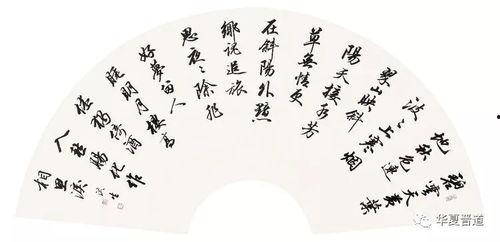 碧雲天黄葉
地秋色連
波々上寒烟
翠山映斜
陽天接水芳
草無情更
在斜陽外黯
鄉魂追旅
思夜々除非
好夢留人
睡明月樓高
休獨倚酒
入愁腸化作
相思淚
华夏晋道